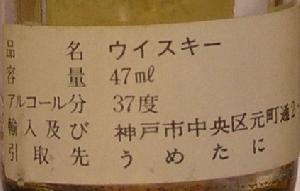 品名 ウイスキー
容量 47ml
アルコール分 37度
輸入及び 神戸市中央区元町通2
引取先 うめたに